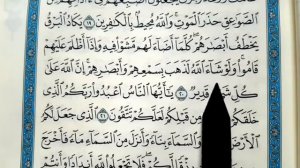 ٱلصَّوَٰعِقِ حَذَرَ ٱلْمَوْتِ وَٱللَّهُ مُحِيطٌۢ بِٱلْكَٰفِرِينَ ١٩ يَكَادُ ٱلْبَرْقُ
يَخْطَفُ أَبْصَٰرَهُمْ كُلَّمَآ أَضَآءَ لَهُم مَّشَوْا۟ فِيهِ وَإِذَآ أَظْلَمَ عَلَيْهِمْ
قَامُوا۟ وَلَوْ شَآءَ ٱللَّهُ لَذَهَبَ بِسَمْعِهِمْ وَأَبْصَٰرِهِمْ إِنَّ ٱللَّهَ عَلَىٰ
كُلِّ شَىْءٍ قَدِيرٌ ٢٠ يَٰٓأَيُّهَا ٱلنَّاسُ ٱعْبُدُوا۟ رَبَّكُمُ ٱلَّذِى
خَلَقَكُمْ مِن قَبْلِكُمْ لَعَلَّكُمْ تَتَّقُونَ ٢١ ٱلَّذِى جَعَلَ لَكُمُ
ٱلْأَرْضَ وَٱلسَّمَآءَ بِنَآءً وَأَنزَلَ مِنَ ٱلسَّمَآءِ مَآءً فَأَخْرَجَ